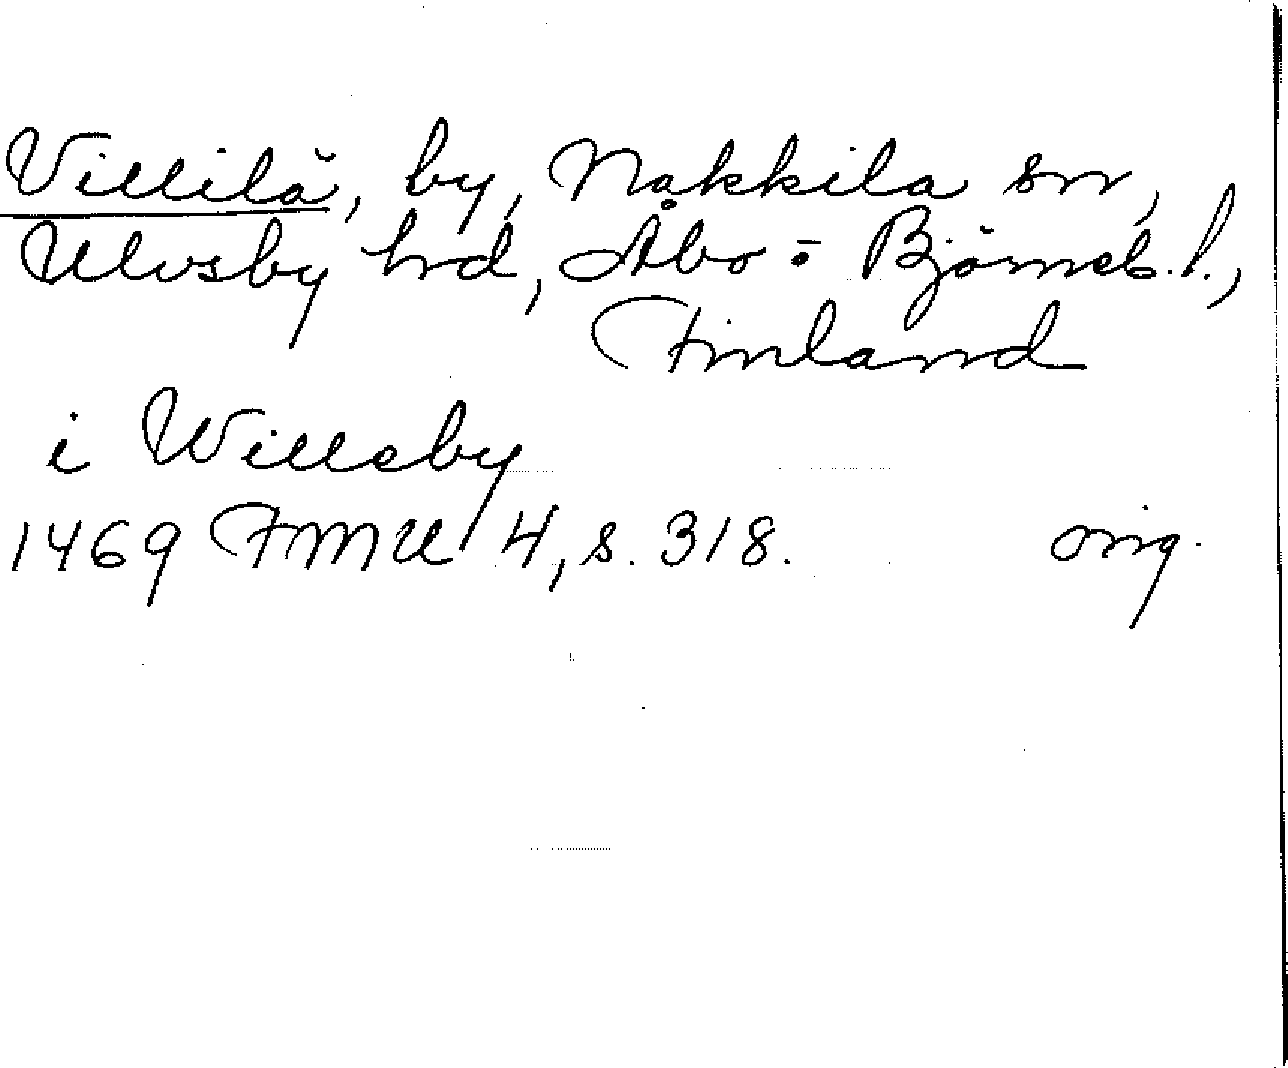 Villilä, by, Nakkila sn,
Ulvsby hrd, Åbo-Björneb. l.,
Finland
i Willeby
1469 FMU 4, s. 318. orig.